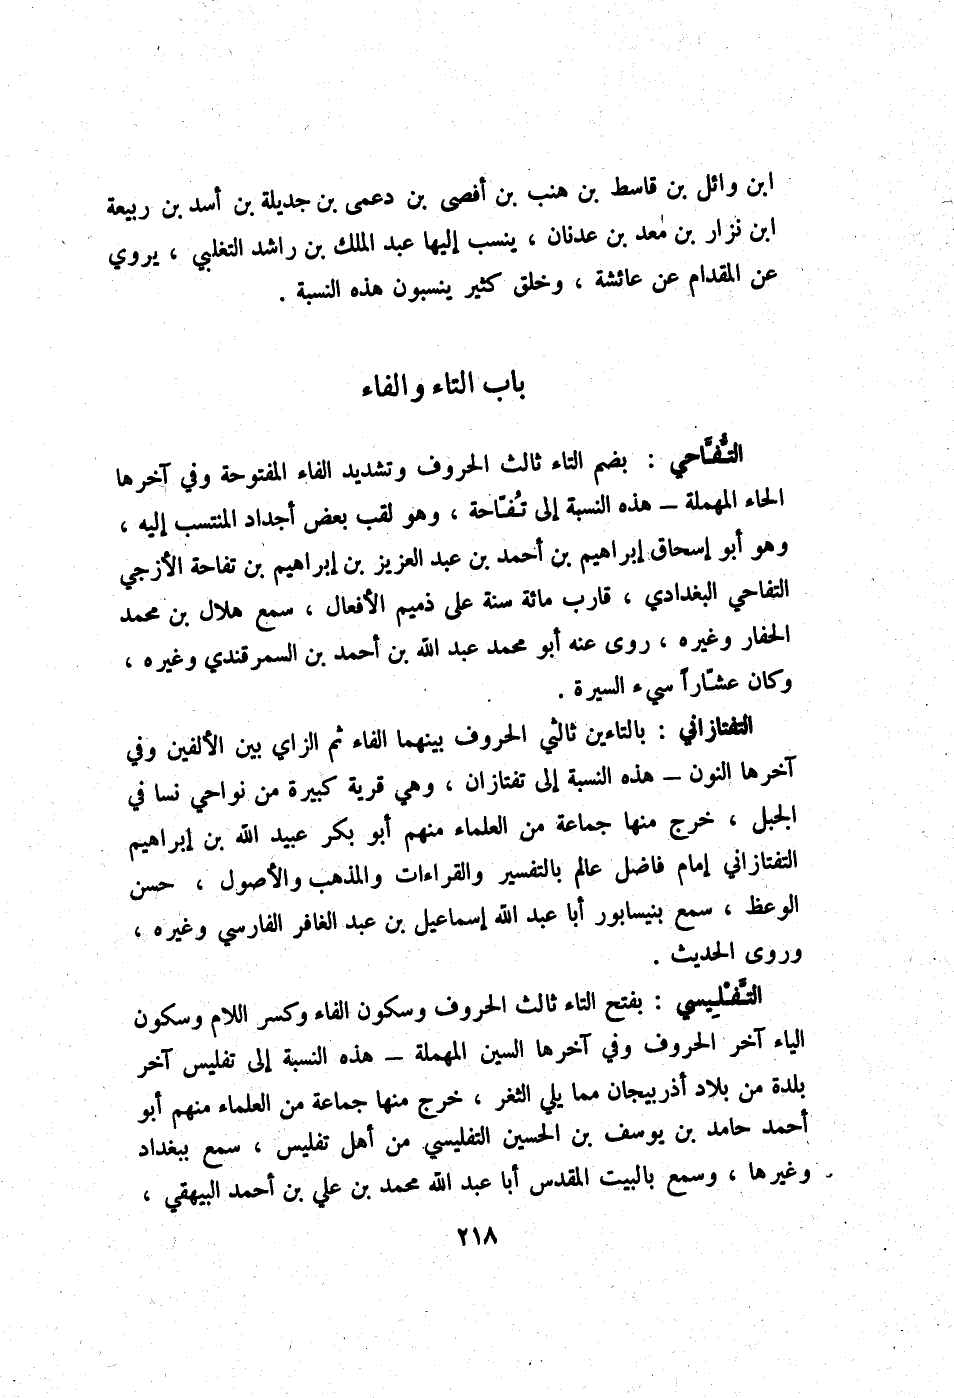 ابن وائل بن قاسط بن هنب بن أفصى بن دعمى بن جديلة بن أسد بن ربيعة
ابن نزار بن مَعد بن عدنان ، ينسب إليها عبد الملك بن راشد التغلبي ، يروي
عن المقدام عن عائشة ، وخلق كثير ينسبون هذه النسبة .
باب التاء والفاء
التُّفَّاحي : بضم التاء ثالث الحروف وتشديد الفاء المفتوحة وفي آخرها
الحاء المهملة – هذه النسبة إلى تُفّاحة ، وهو لقب بعض أجداد المنتسب إليه ،
وهو أبو إسحاق إبراهيم بن أحمد بن عبد العزيز بن إبراهيم بن تفاحة الأزجي
التفاحي البغدادي ، قارب مائة سنة على ذميم الأفعال ، سمع هلال بن محمد
الحفار وغيره ، روى عنه أبو محمد عبد الله بن أحمد بن السمرقندي وغيره ،
وكان عشّاراً سيء السيرة .
التفتازاني : بالتاءين ثالثي الحروف بينهما الفاء ثم الزاي بين الألفين وفي
آخرها النون – هذه النسبة إلى تفتازان ، وهي قرية كبيرة من نواحي نسا في
الجبل ، خرج منها جماعة من العلماء منهم أبو بكر عبيد الله بن إبراهيم
التفتازاني إمام فاضل عالم بالتفسير والقراءات والمذهب والأصول ، حسن
الوعظ ، سمع بنيسابور أبا عبد الله إسماعيل بن عبد الغافر الفارسي وغيره ،
وروى الحديث .
التَّفْلِيسي : بفتح التاء ثالث الحروف وسكون الفاء وكسر اللام وسكون
الياء آخر الحروف وفي آخرها السين المهملة – هذه النسبة إلى تفليس آخر
بلدة من بلاد أذربيجان مما يلي الثغر ، خرج منها جماعة من العلماء منهم أبو
أحمد حامد بن يوسف بن الحسين التفليسي من أهل تفليس ، سمع ببغداد
وغيرها ، وسمع بالبيت المقدس أبا عبد الله محمد بن علي بن أحمد البيهقي ،
٢١٨